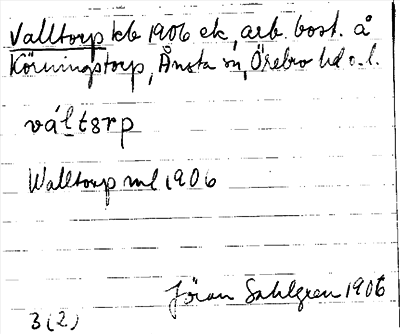 Valltorp kb 1906 ek, arb. bost. å
Körningstorp, Ånsta sn, Örebro hd o. l.
váltsrp
Walltorp ml 1906
Jöran Sahlgren 1906
3(2)